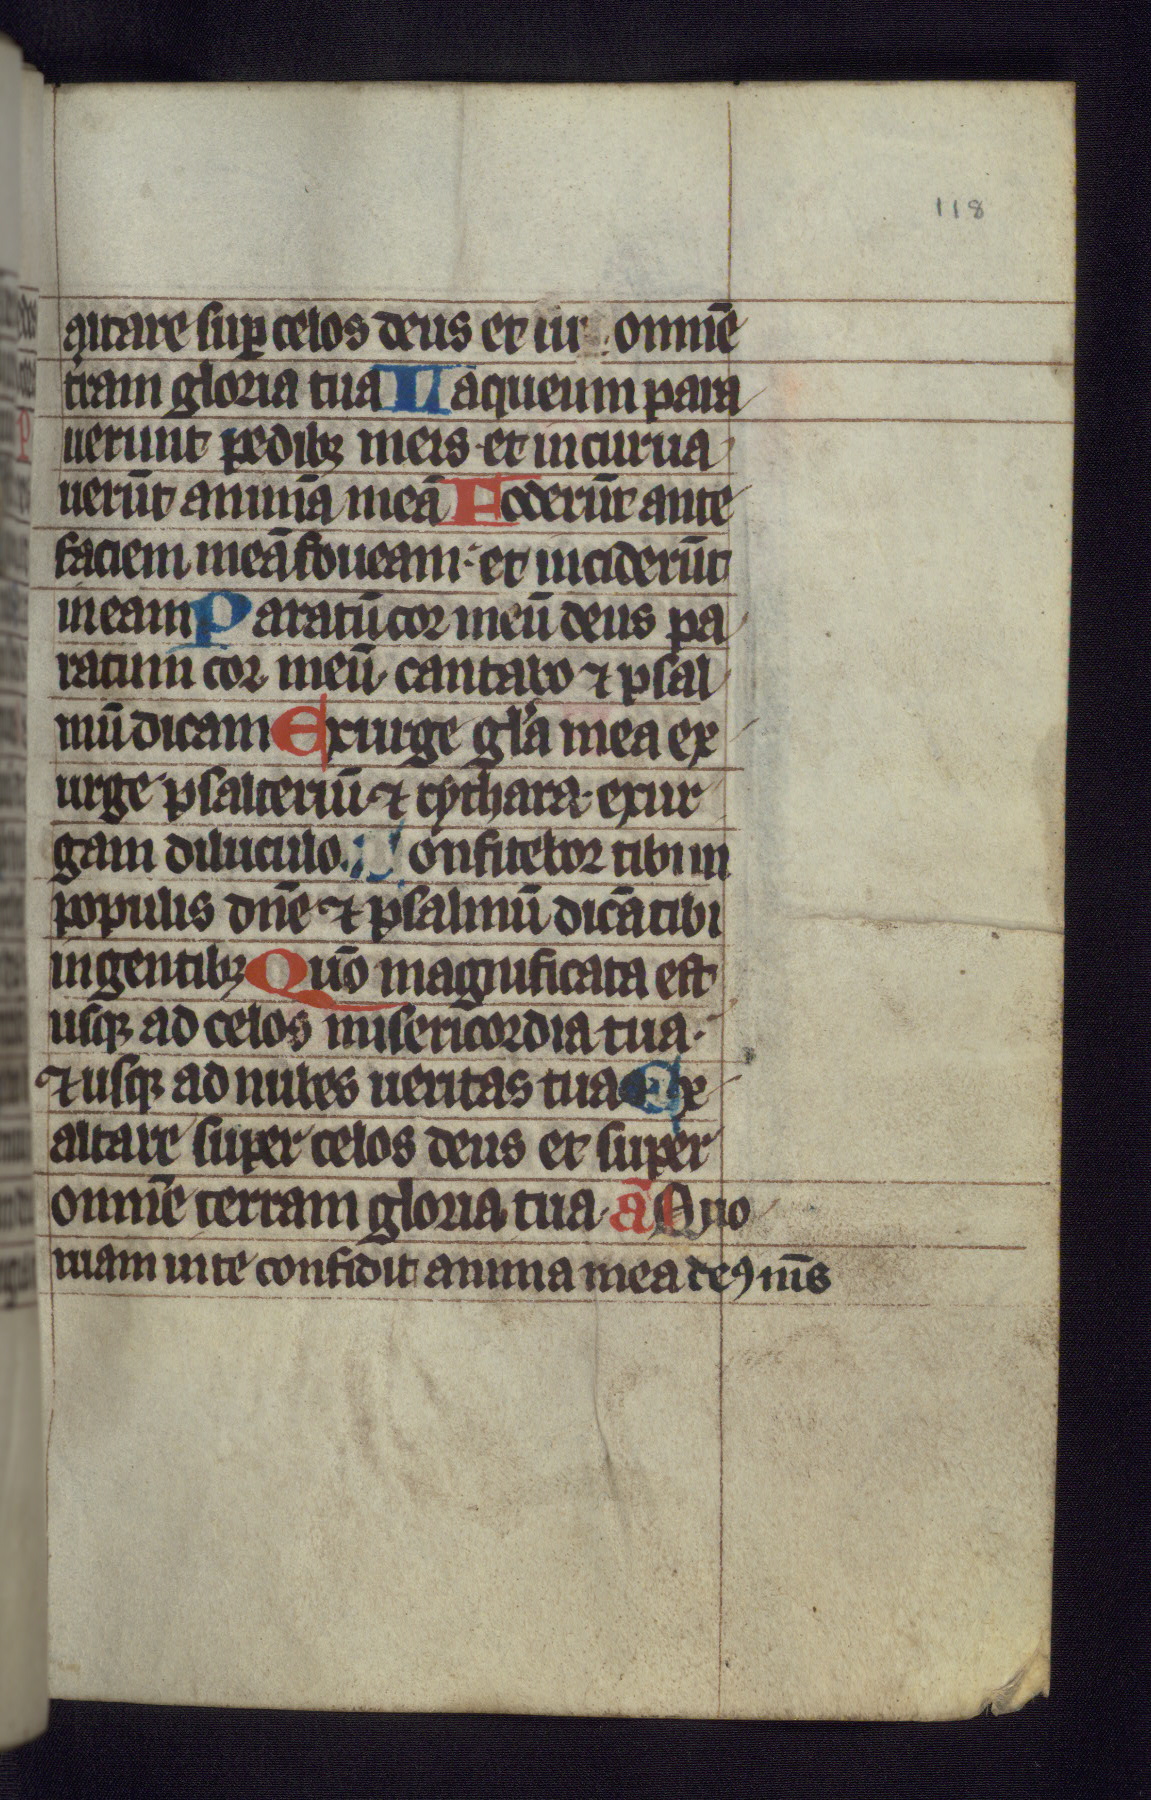 118
altare sup celos deus et in omnē
tram gloria tua Laqueum para
uerunt pedibꝫ meis · et incurua
uerūt animā meā Foderūt ante
faciem meā foueam · et inciderūt
in eam Paratū cor meū deus pa
ratum cor meū cantabo ⁊ psal
mū dicam Exurge gl'a mea ex
urge psalteriū ⁊ cythara · exur
gam diluculo · Confitebor tibi in
populis dn̄e ⁊ psalmū dicā tibi
in gentibꝫ Quō magnificata est
usqꝫ ad celos misericordia tua ·
⁊ usqꝫ ad nubes ueritas tua Ex
altare super celos deus et super
omnē terram gloria tua · ā Quo
niam in te confidit anima mea deꝰ m̄s